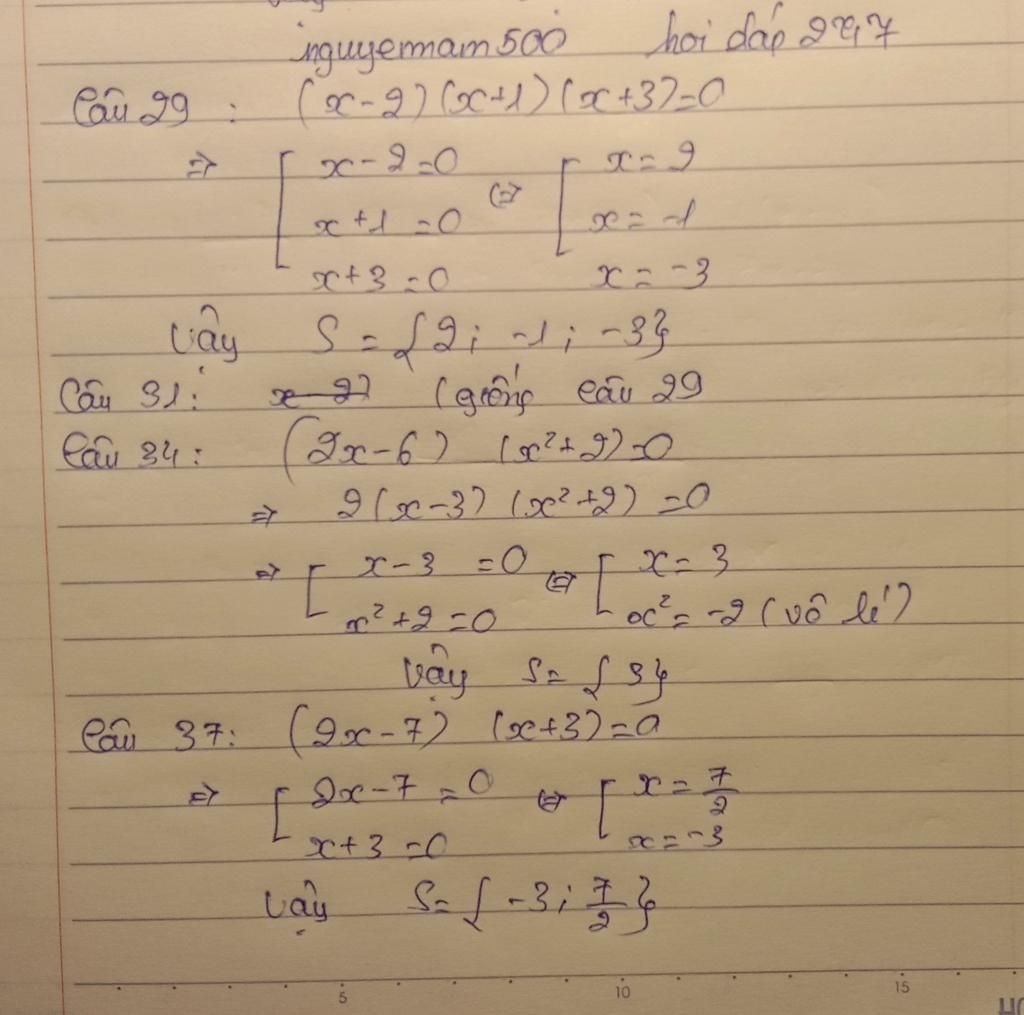 nguyennam500 hoi đáp 247
Câu 29 : (x-2)(x+1)(x+3)=0
⇒ [ x-2=0 ⇔ [ x=2
x+1=0 x=-1
x+3=0 x=-3
Vậy S={2; -1; -3}
Câu 31: (giống câu 29
Câu 34: (2x-6) (x²+2)=0
⇒ 2(x-3) (x²+2) =0
⇒ [ x-3 =0 ⇔ [ x=3
x²+2=0 x²=-2 (vô lí)
Vậy S={3}
Câu 37: (2x-7) (x+3)=0
⇒ [ 2x-7=0 ⇔ [ x=7/2
x+3=0 x=-3
Vậy S={-3; 7/2}
5 10 15